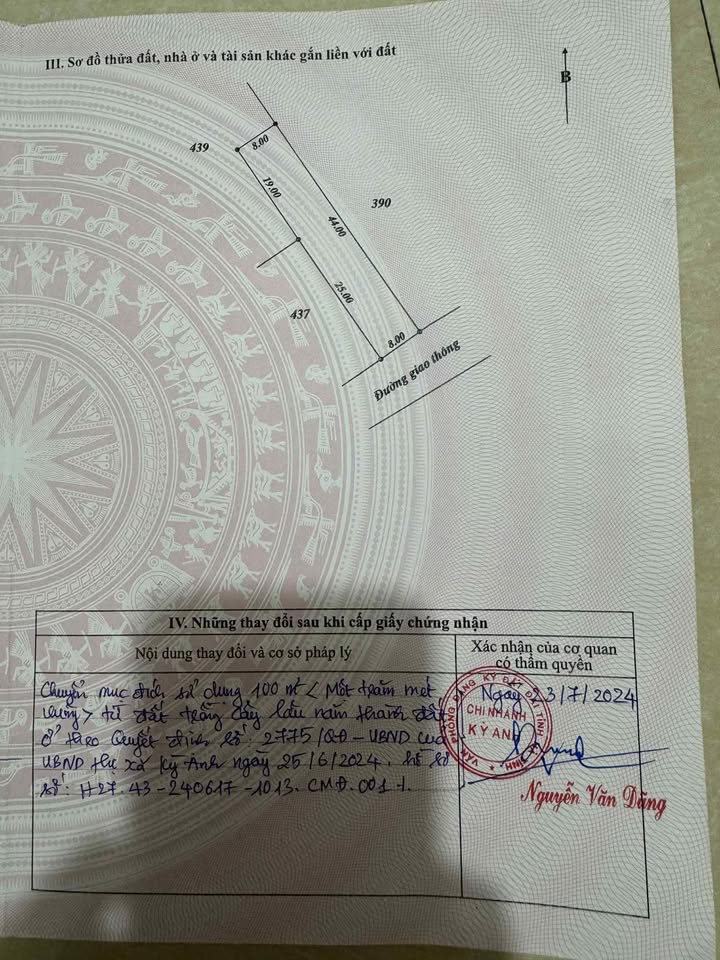 III. Sơ đồ thửa đất, nhà ở và tài sản khác gắn liền với đất
B
439
8.00
19.00
390
44.00
25.00
437
8.00
Đường giao thông
IV. Những thay đổi sau khi cấp giấy chứng nhận
Nội dung thay đổi và cơ sở pháp lý
Xác nhận của cơ quan
có thẩm quyền
Chuyển mục đích sử dụng 100 m² < Một trăm mét
vuông > từ đất trồng cây lâu năm thành đất
ở theo Quyết định số: 2775/QĐ - UBND của
UBND thị xã Kỳ Anh ngày 25/6/2024, hồ sơ
số: H27.43-240617-1013. CMĐ.001 -/.
Ngày 23/7/2024
VĂN PHÒNG ĐĂNG KÝ ĐẤT ĐAI TỈNH HÀ TĨNH
CHI NHÁNH
KỲ ANH
Nguyễn Văn Dăng